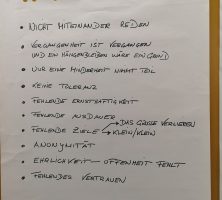 • NICHT MITEINANDER REDEN
• VERGANGENHEIT IST VERGANGEN
UND EIN HÄNGENBLEIBEN WÄRE EIN GRUND
• NUR EINE MINDERHEIT NIMMT TEIL
• KEINE TOLERANZ
• FEHLENDE ERNSTHAFTIGKEIT
• FEHLENDE AUSDAUER
• FEHLENDE ZIELE → DAS GROẞE VERLIEREN
→ KLEIN/KLEIN
• ANONYMITÄT
• EHRLICHKEIT — OFFENHEIT FEHLT
• FEHLENDER VERTRAUEN